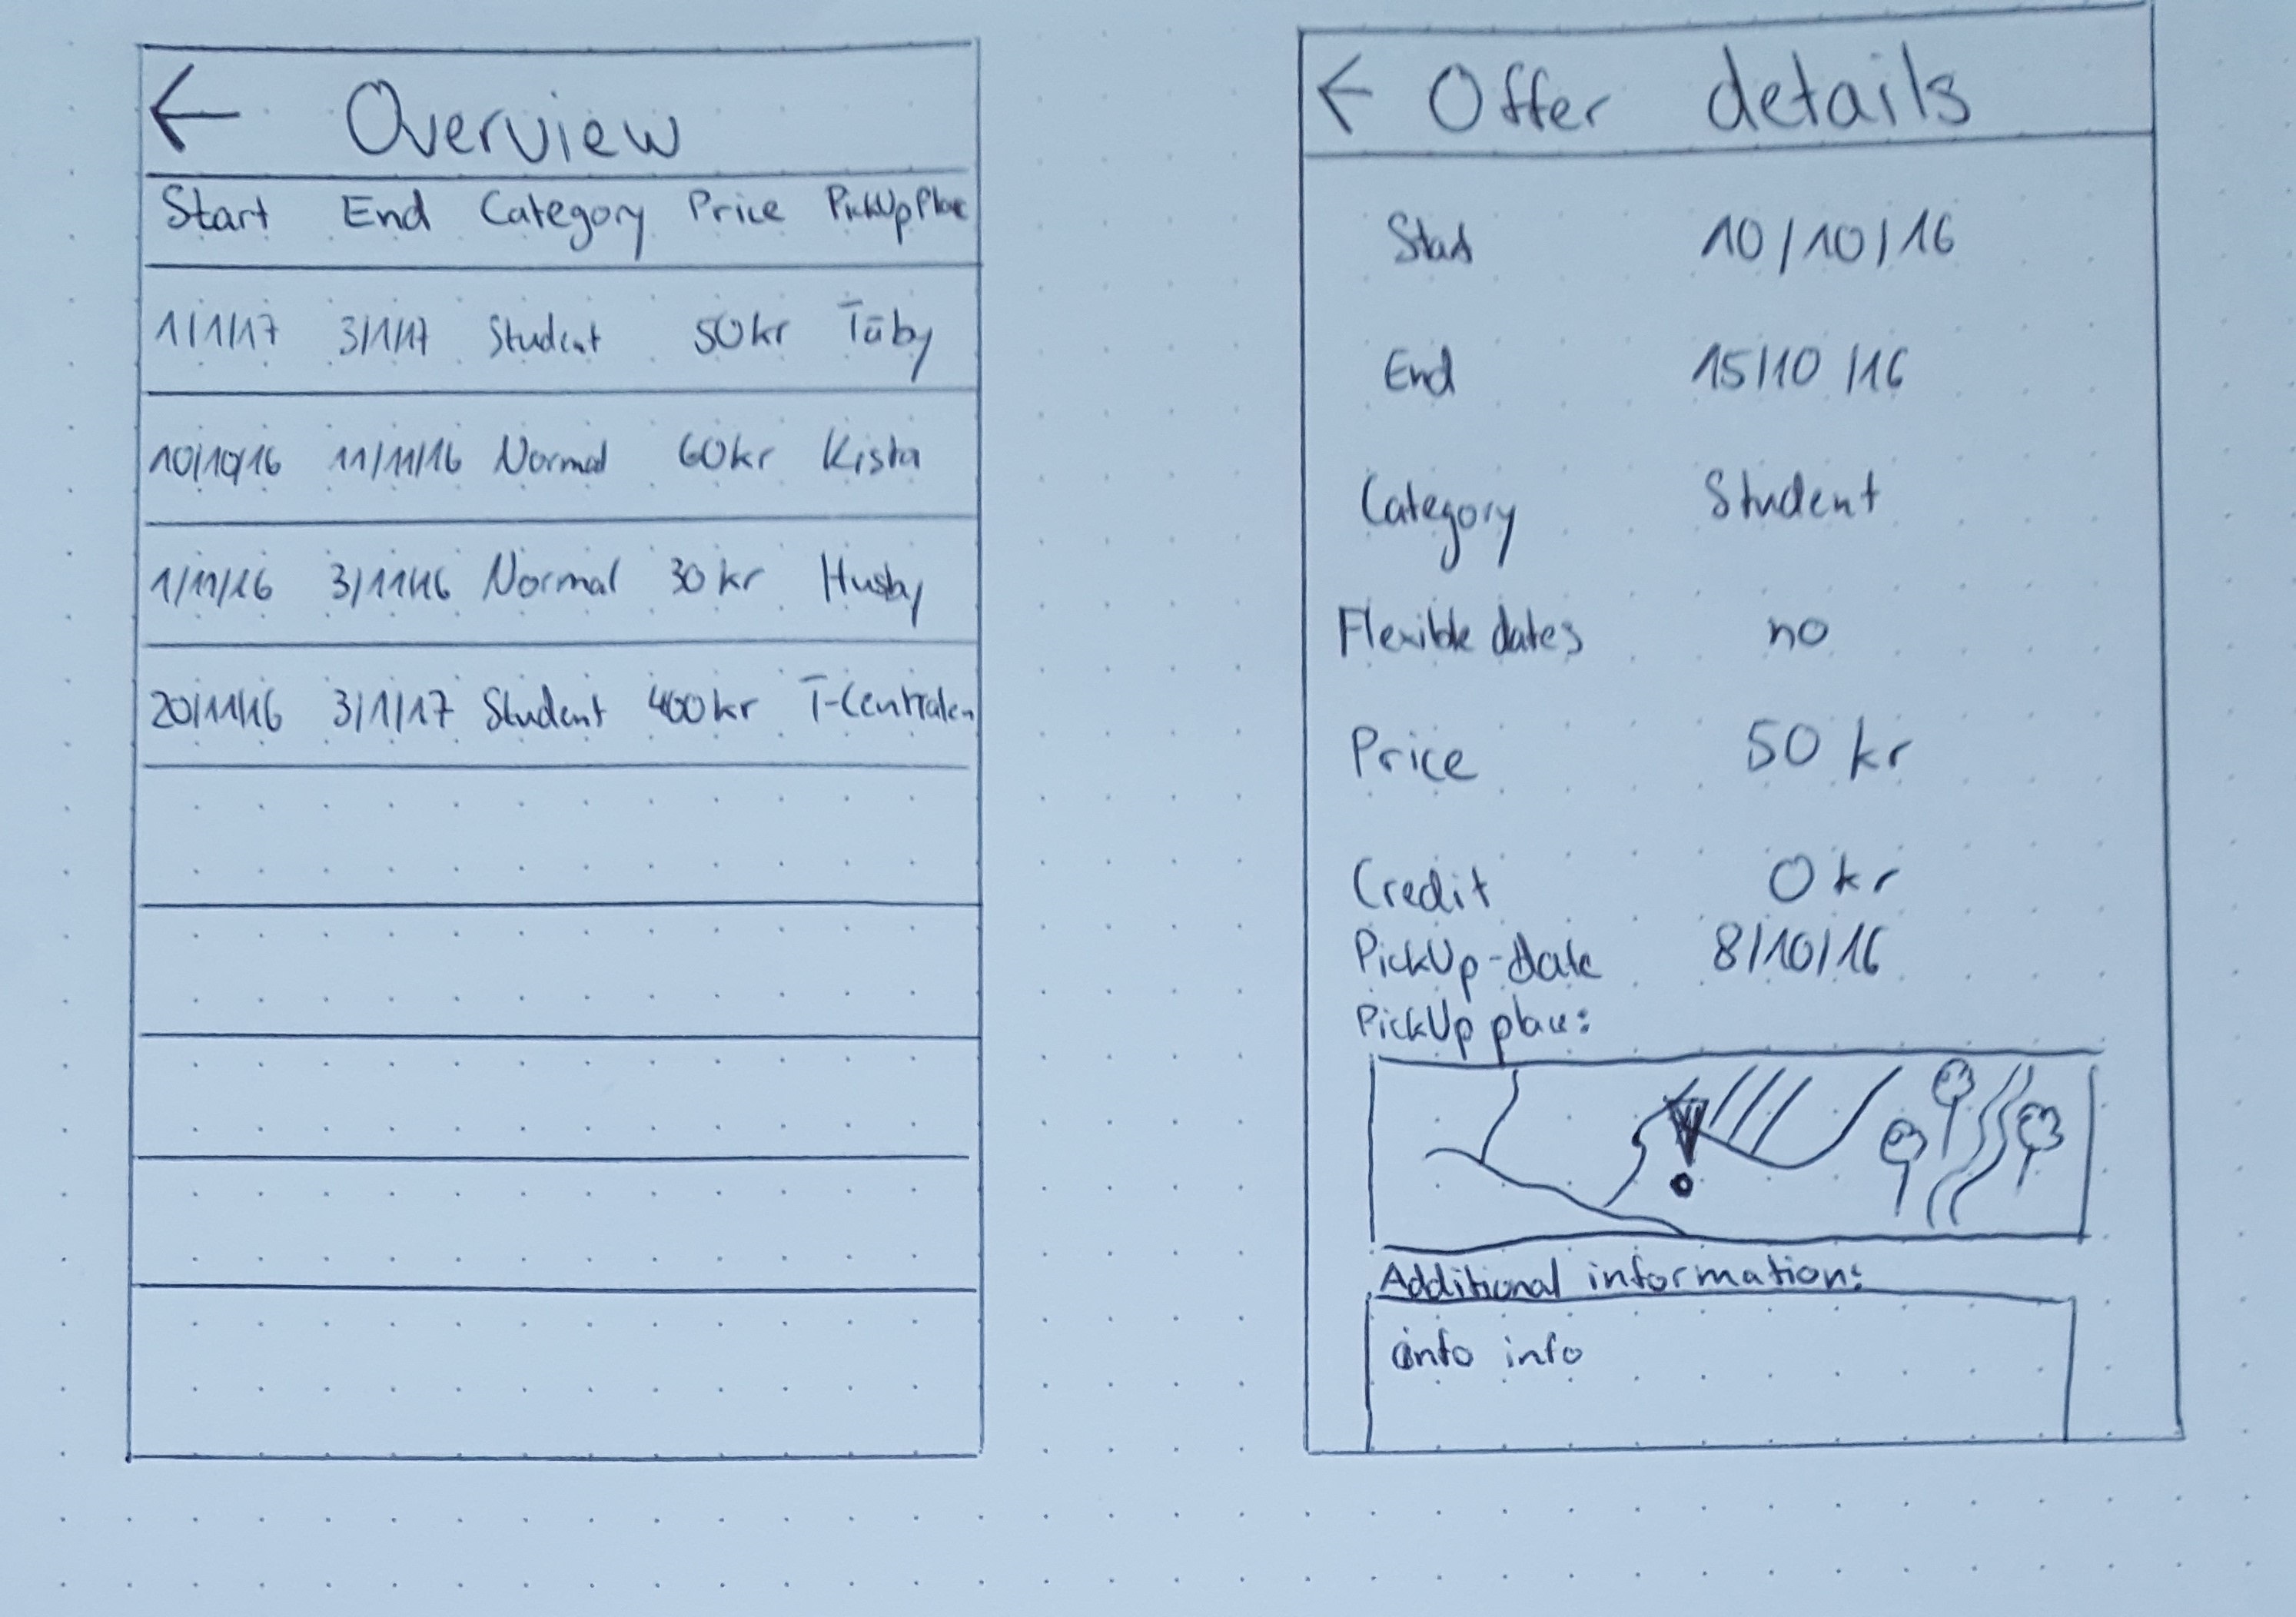 ← Overview
Start End Category Price PickUp Place
1/1/17 3/1/17 Student 50kr Täby
10/10/16 11/11/16 Normal 60kr Kista
1/11/16 3/11/16 Normal 30kr Husby
20/11/16 3/1/17 Student 400kr T-Centralen
← Offer details
Start 10/10/16
End 15/10/16
Category Student
Flexible dates no
Price 50 kr
Credit 0 kr
PickUp-date 8/10/16
PickUp place:
Additional information:
info info